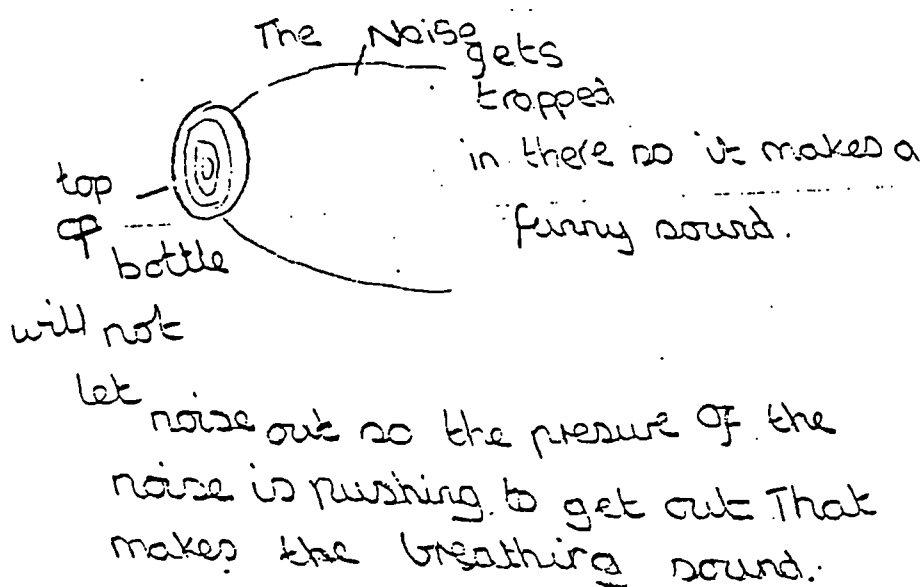 The Noise gets
trapped
in there so it makes a
funny sound.
top
of
bottle
will not
let
noise out so the presure of the
noise is pushing to get out. That
makes the breathing sound.